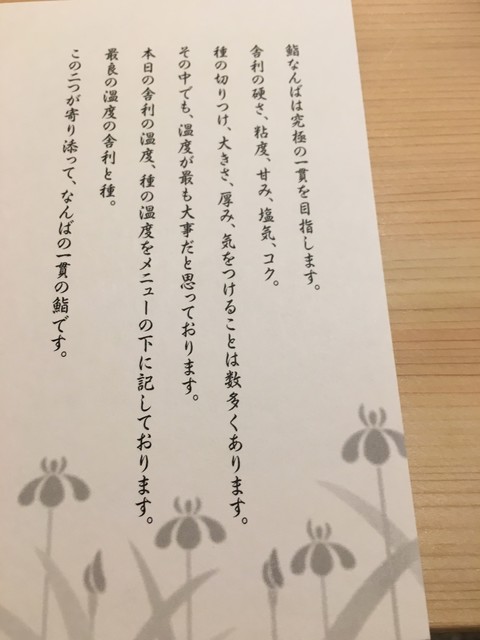 鮨なんばは究極の一貫を目指します。
舎利の硬さ、粘度、甘み、塩気、コク。
種の切りつけ、大きさ、厚み、気をつけることは数多くあります。
その中でも、温度が最も大事だと思っております。
本日の舎利の温度、種の温度をメニューの下に記しております。
最良の温度の舎利と種。
この二つが寄り添って、なんばの一貫の鮨です。